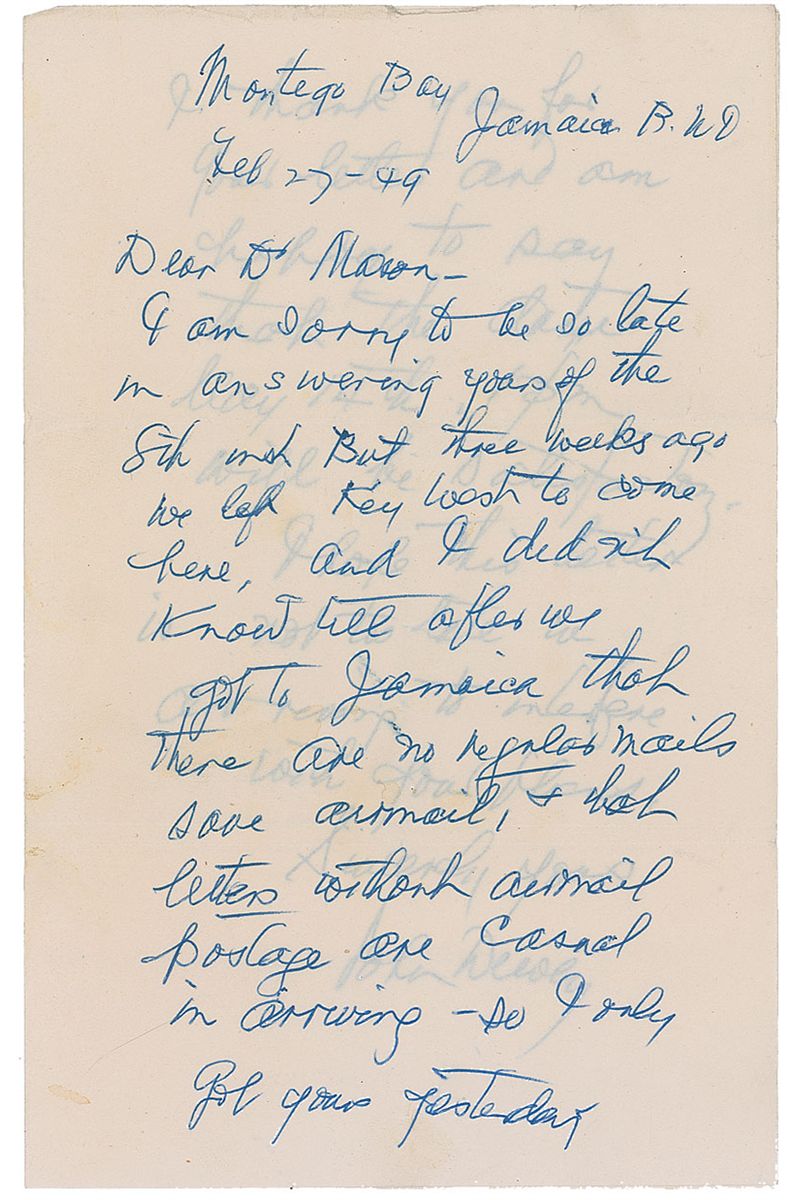 Montego Bay
Jamaica B.W.I
Feb 27-49
Dear Dr Mason-
I am sorry to be so late
in answering yours of the
8th inst But three weeks ago
we left Key West to come
here, and I didn't
know till after we
got to Jamaica that
there are no regular mails
save airmail, & that
letters without airmail
postage are casual
in arriving - so I only
Got yours yesterday